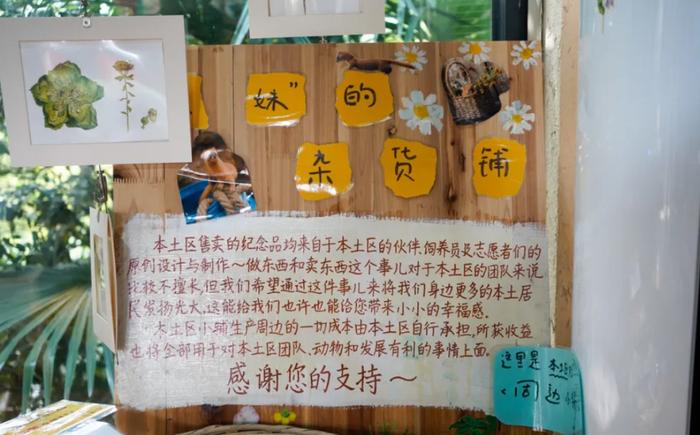 妹”的
杂货铺
本土区售卖的纪念品均来自于本土区的伙伴、饲养员及志愿者们的
原创设计与制作～做东西和卖东西这个事儿对于本土区的团队来说
比较不擅长,但我们希望通过这件事儿来将我们身边更多的本土居
民发扬光大,这能给我们也许也能给您带来小小的幸福感.
本土区小铺生产周边的一切成本由本土区自行承担,所获收益
也将全部用于对本土区团队、动物和发展有利的事情上面。
感谢您的支持～
这里是本土
周边